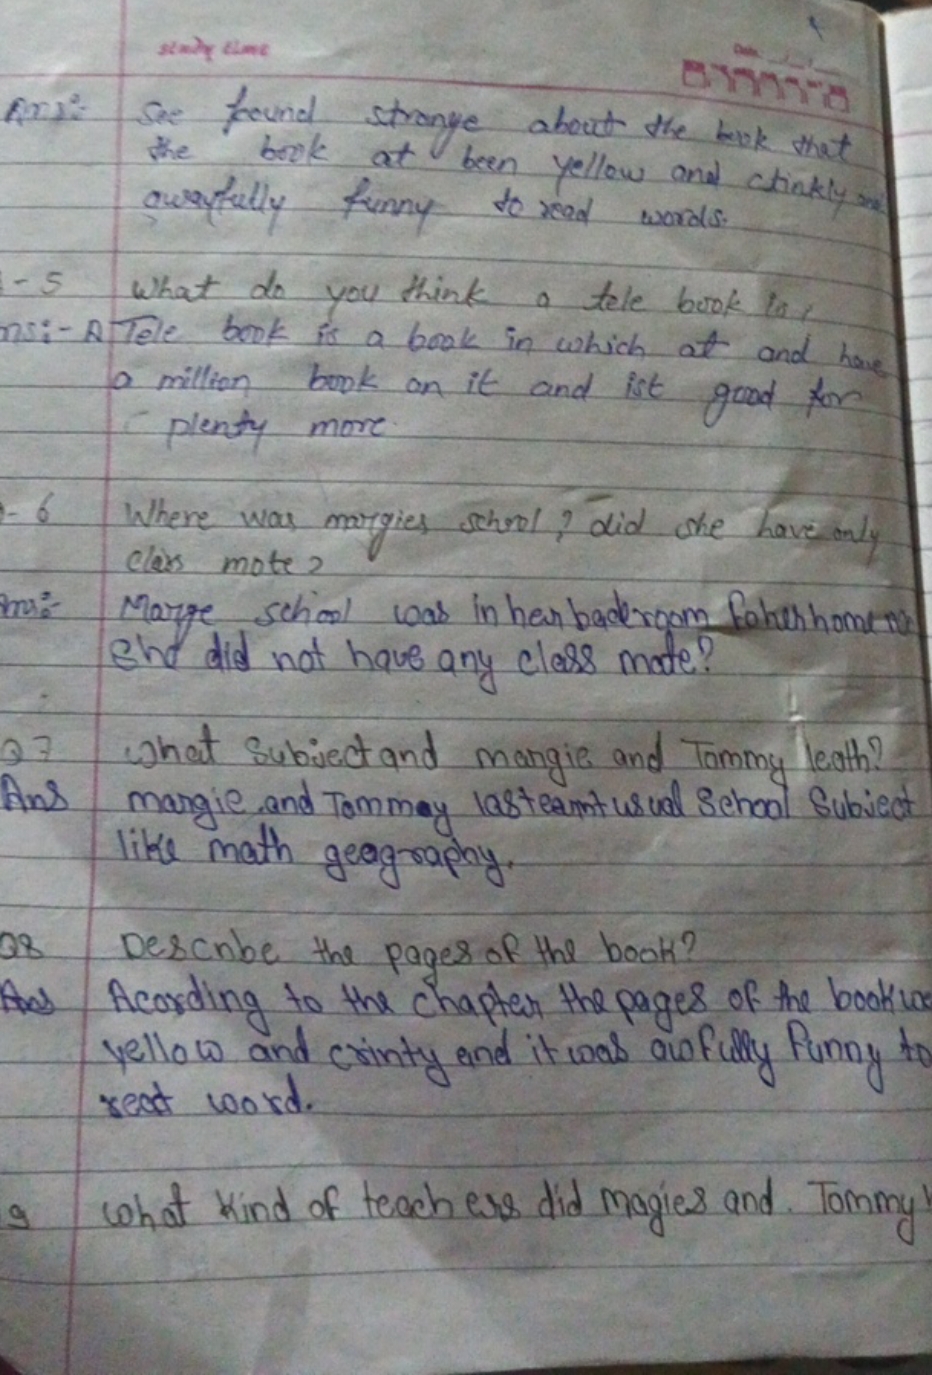 study time
Date
Ans:- See found strange about the book that
the book at been yellow and ctinkly
awayfully funny to read words.
-5 What do you think a tele book is,
ns:- A Tele book is a book in which at and have
a million book on it and ist good for
plenty more.
-6 Where was margies school? did she have only
class mate?
Ans:- Marge school was in her home
She did not have any class mate?
Q7 What Subject and margie and Tommy leath?
Ans margie and Tommay usual School Subject
like math geography.
Q8 Describe the pages of the book?
Ans Acording to the chapter the pages of the book
yellow and crinty and it was awfully funny to
read word.
9 What kind of teachers did magies and Tommy